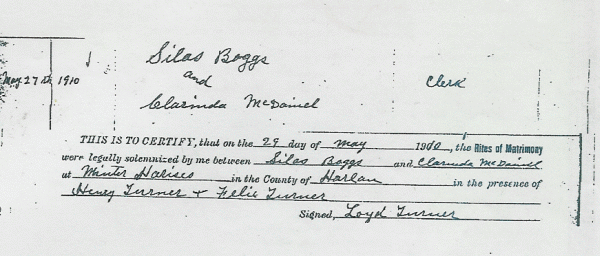 Silas Boggs
May 27th 1910
and
Clerk
Clarinda McDaniel
THIS IS TO CERTIFY, that on the 29 day of may 1910, the Rites of Matrimony
were legally solemnized by me between Silas Boggs and Clarinda McDaniell
at Winter Harises in the County of Harlan in the presence of
Henry Turner + Felix Turner
Signed, Loyd Turner